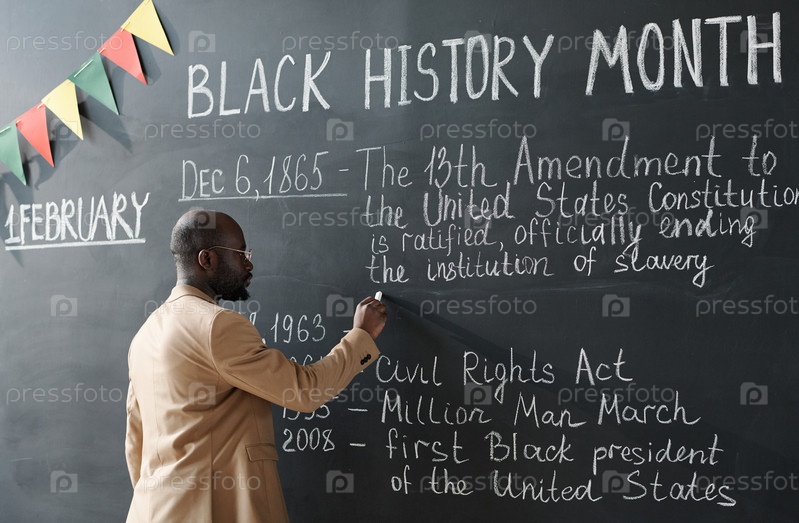 BLACK HISTORY MONTH
1 FEBRUARY
Dec 6, 1865 - The 13th Amendment to
the United States Constitution
is ratified, officially ending
the institution of slavery
1963
Civil Rights Act
1995 - Million Man March
2008 - first Black president
of the United States
pressfoto